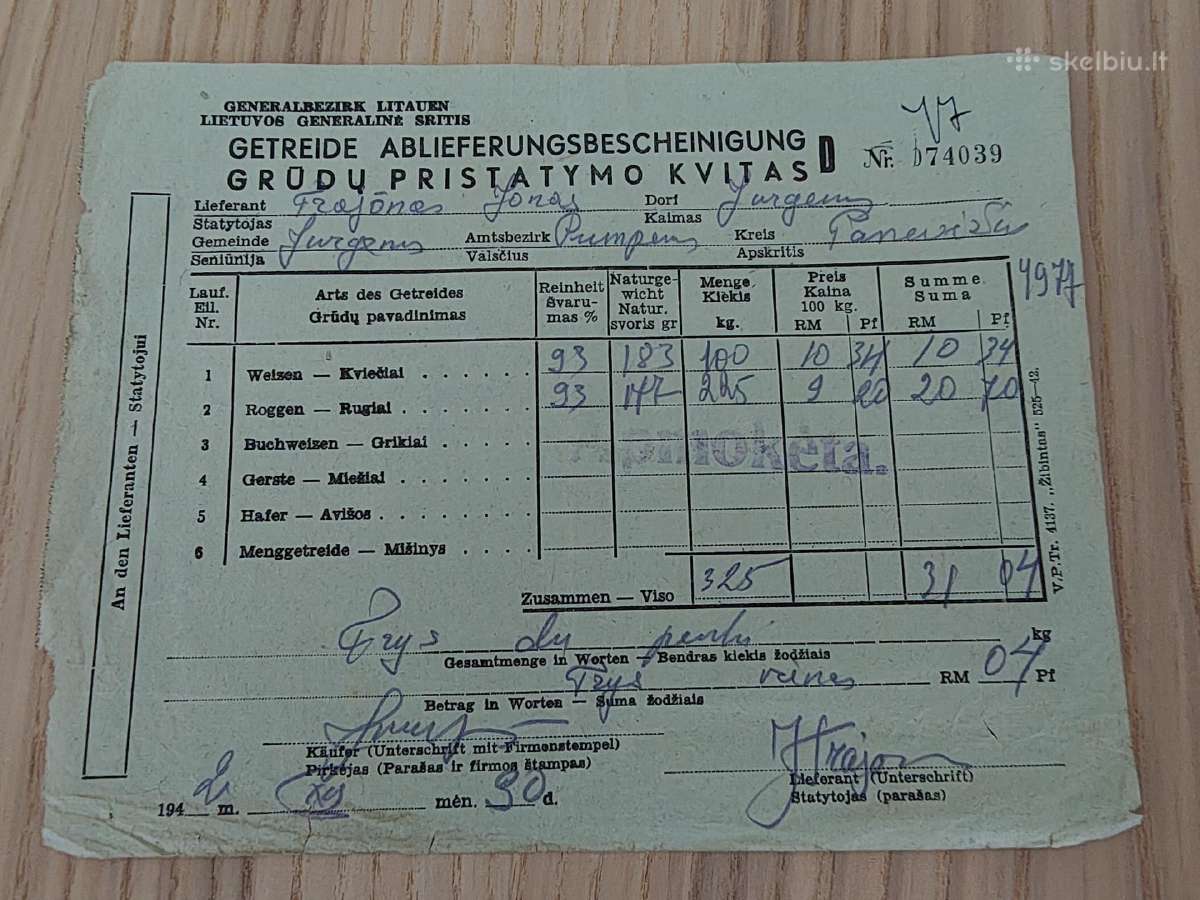 skelbiu.lt
GENERALBEZIRK LITAUEN
LIETUVOS GENERALINĖ SRITIS
GETREIDE ABLIEFERUNGSBESCHEINIGUNG D Nr. 074039
GRŪDŲ PRISTATYMO KVITAS
Lieferant Trajonas Jonas Dorf
Statytojas Kaimas
Gemeinde Amtsbezirk Kreis
Seniūnija Valsčius Apskritis
Lauf. Eil. Nr. Arts des Getreides Grūdų pavadinimas Reinheit Švarumas % Naturgewicht Natur. svoris gr Menge Kiekis kg. Preis Kaina 100 kg. RM Pf Summe Suma RM Pf
1 Weizen — Kviečiai 93 183 100 10 34 10 34
2 Roggen — Rugiai 93 177 225 9 20 20 70
3 Buchweizen — Grikiai
4 Gerste — Miežiai
5 Hafer — Avižos
6 Menggetreide — Mišinys
Apmokėta.
Zusammen — Viso 325 31 04
Trys du penki kg
Gesamtmenge in Worten — Bendras kiekis žodžiais
Trys vienas RM 04 Pf
Betrag in Worten — Suma žodžiais
Käufer (Unterschrift mit Firmenstempel)
Pirkėjas (Parašas ir firmos štampas)
Lieferant (Unterschrift)
Statytojas (parašas)
194 2 m. mėn. 30 d.
An den Lieferanten — Statytojui
V.P.Tr. 4137. „Žibintas" 525—42.